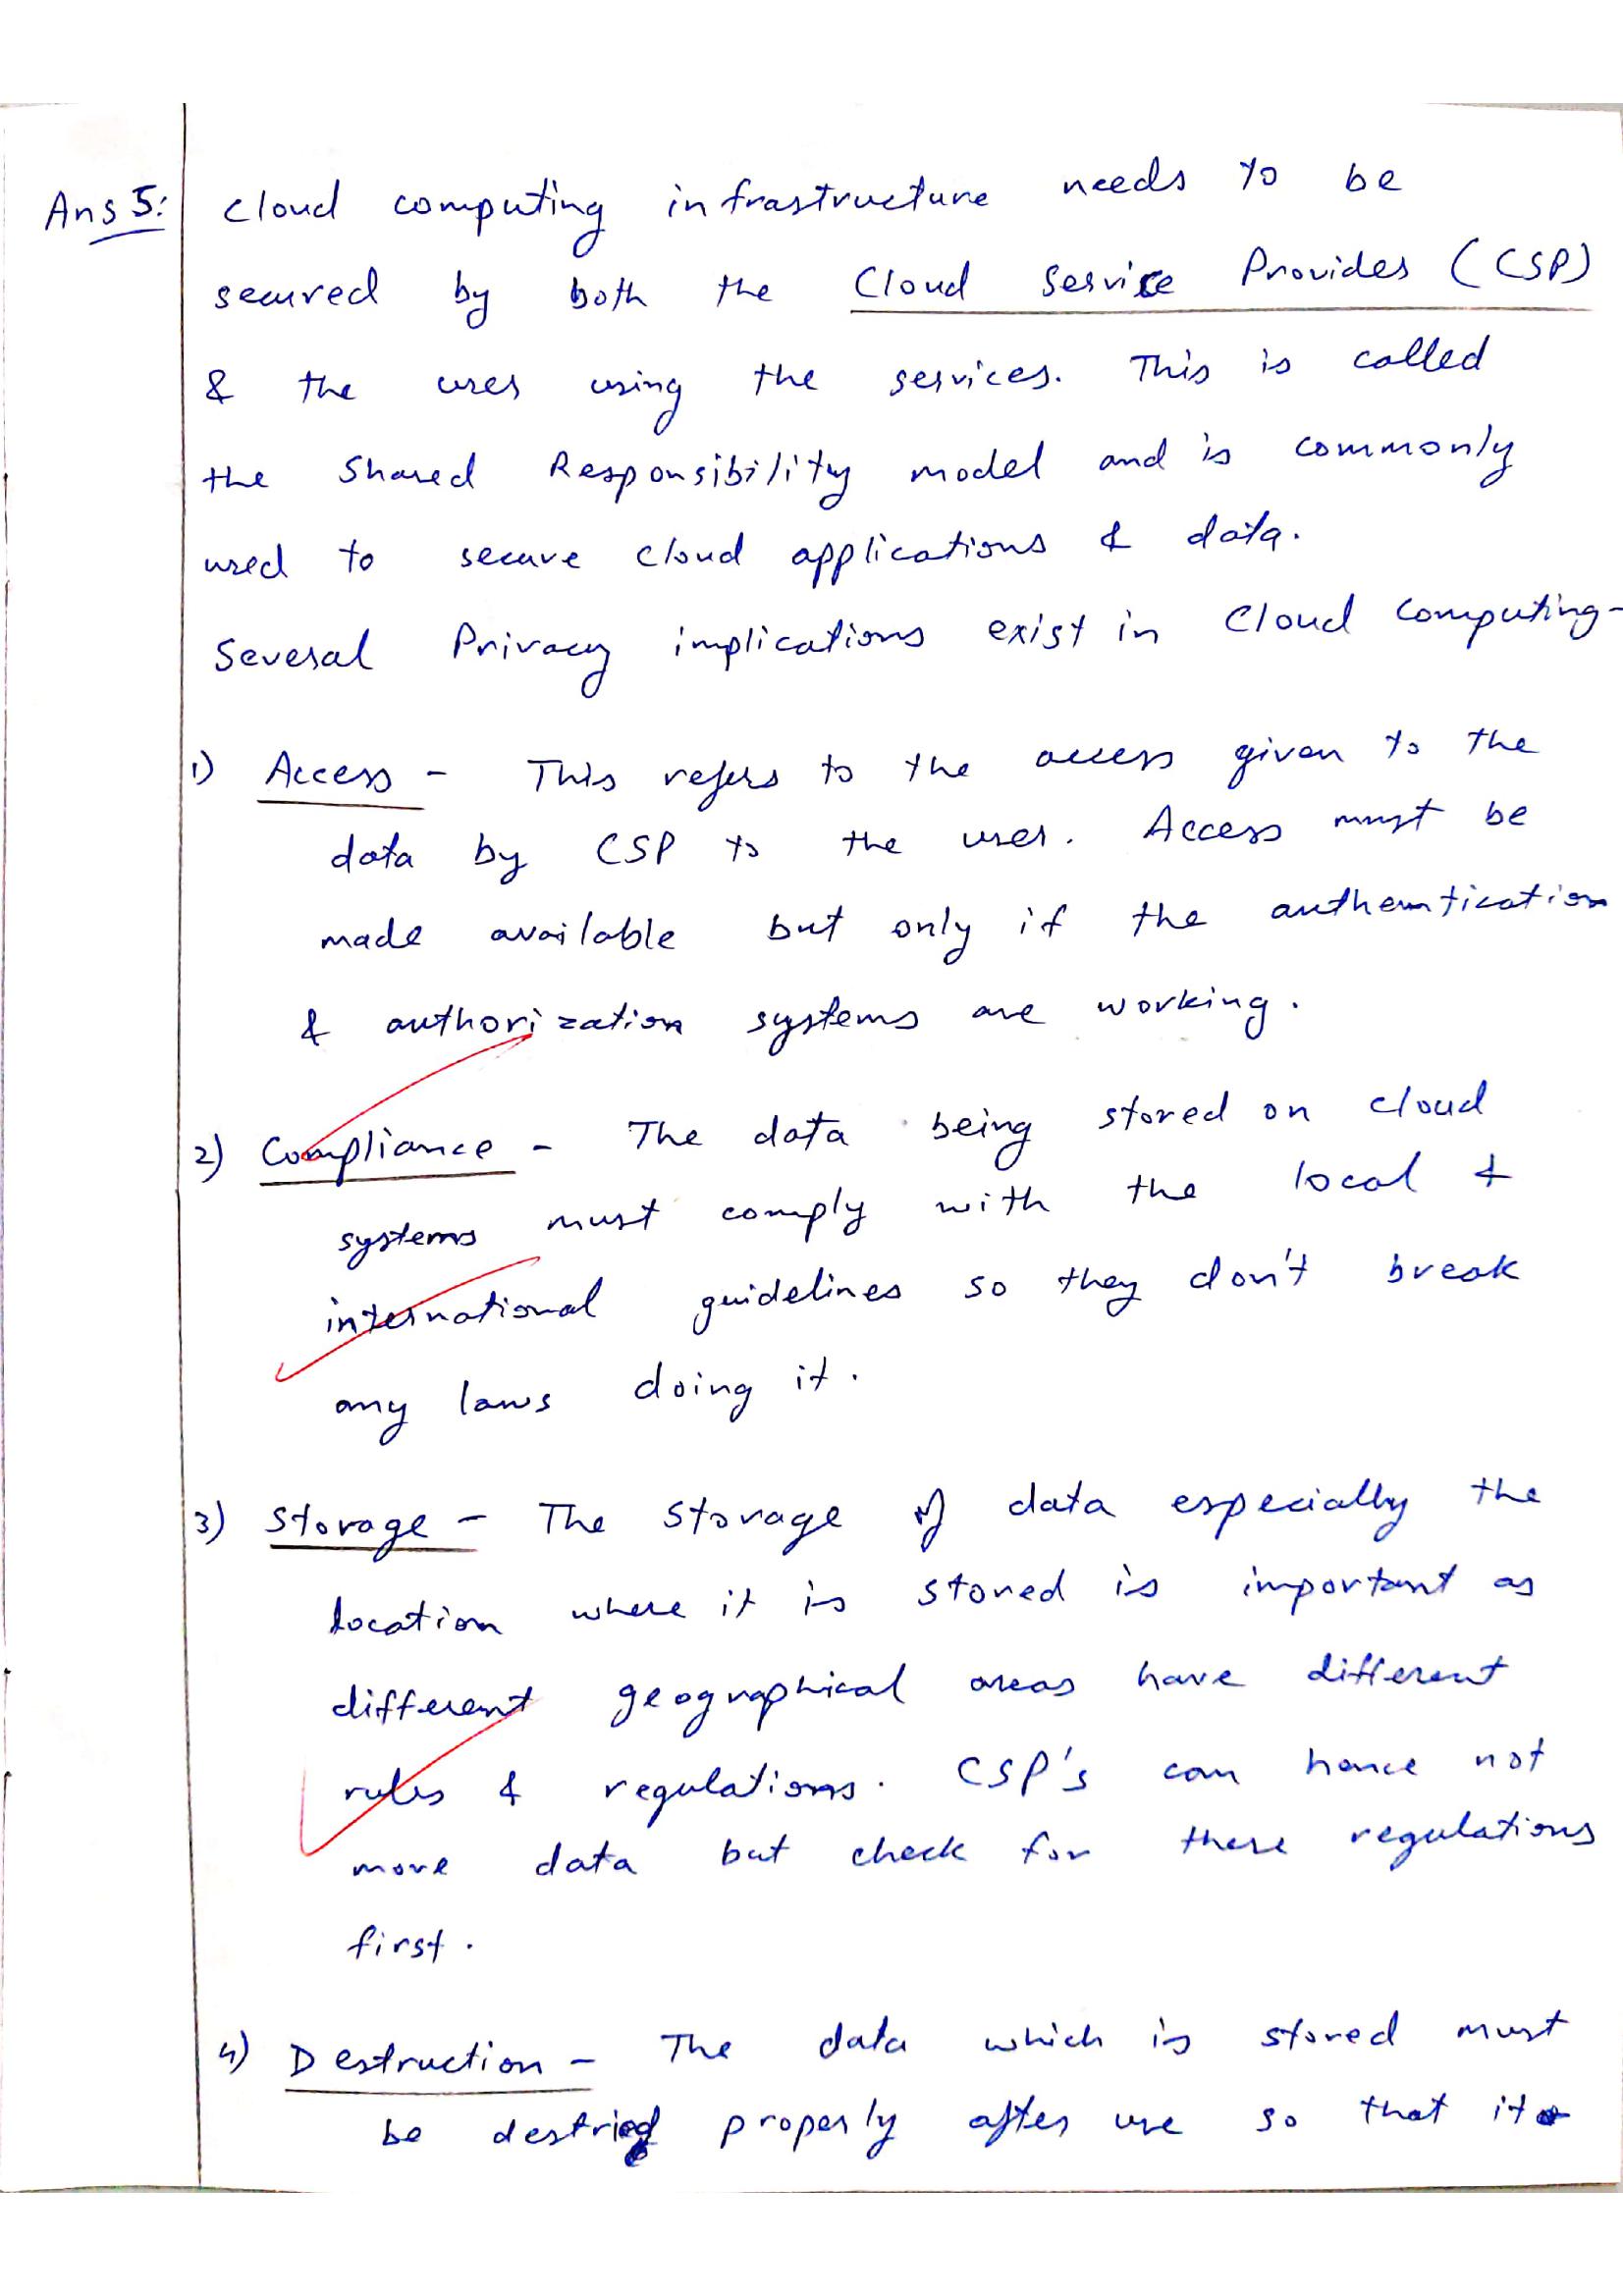 Ans 5: Cloud computing infrastructure needs to be
secured by both the Cloud Service Provider (CSP)
& the user using the services. This is called
the Shared Responsibility model and is commonly
used to secure cloud applications & data.
Several Privacy implications exist in Cloud Computing-
1) Access - This refers to the access given to the
data by CSP to the user. Access must be
made available but only if the authentication
& authorization systems are working.
2) Compliance - The data being stored on cloud
systems must comply with the local &
international guidelines so they don't break
any laws doing it.
3) Storage - The storage of data especially the
location where it is stored is important as
different geographical areas have different
rules & regulations. CSP's can hence not
move data but check for these regulations
first.
4) Destruction - The data which is stored must
be properly after use so that it